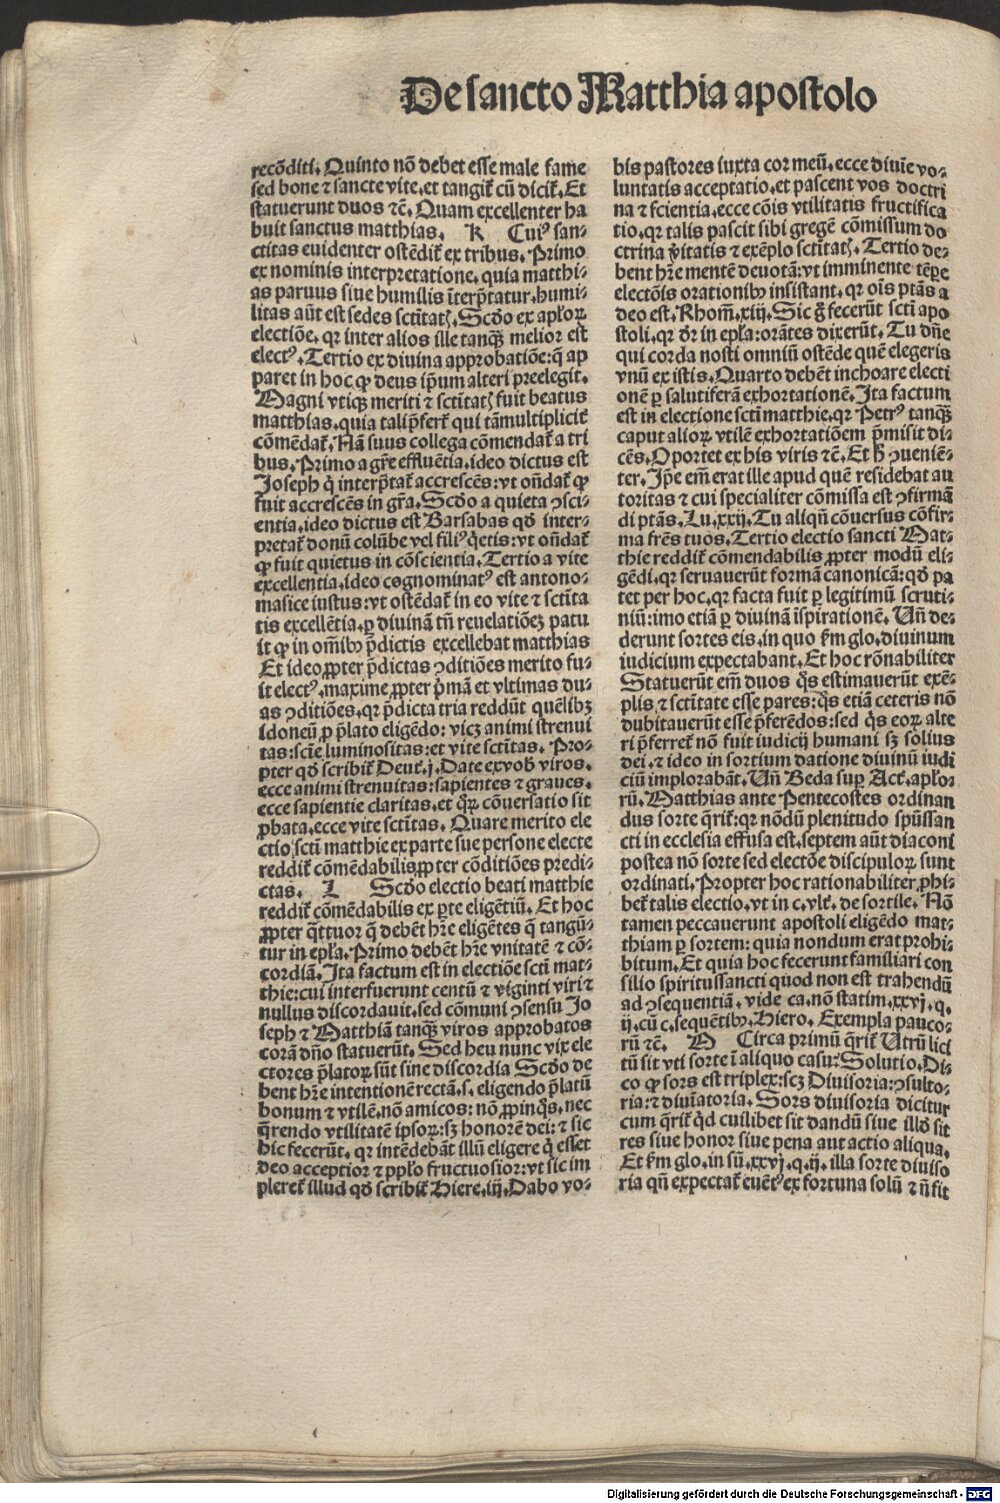 De sancto Matthia apostolo
recōditi. Quinto nō debet esse male fame
sed bone ⁊ sancte vite, et tangit᷑ cū dicit᷑. Et
statuerunt duos ⁊c̄. Quam excellenter ha
buit sanctus matthias. K Cuiꝰ san⸗
ctitas euidenter ostēdit᷑ ex tribus. Primo
ex nominis interpretatione, quia matthi⸗
as paruus siue humilis īterp̄tatur, humi⸗
litas aūt est sedes sctītatꝭ. Scd̓o ex apl̓oꝝ
electiōe, qꝛ inter alios ille tanqꝫ melior est
electꝰ. Tertio ex diuina approbatiōe: q̄ ap
paret in hoc ꝙ deus ip̄um alteri preelegit.
Magni vtiqꝫ meriti ⁊ sctītatꝭ fuit beatus
matthias, quia talip̄fert᷑ qui tāmultiplicit᷑
cōmēdat᷑. Nā suus collega cōmendat᷑ a tri
bus. Primo a gr̄e effluētia, ideo dictus est
Joseph q̇ interp̄tat᷑ accrescēs: vt oñdat᷑ ꝙ
fuit accrescēs in gr̄a. Scd̓o a quieta ꝯsci⸗
entia, ideo dictus est Barsabas qd̓ inter⸗
pretat᷑ donū colūbe vel filiꝰ q̇etis: vt oñdat᷑
ꝙ fuit quietus in cōscientia. Tertio a vite
excellentia, ideo cognominatꝰ est antono⸗
masice iustus: vt ostēdat᷑ in eo vite ⁊ sctīta
tis excellētia, ꝑ diuinā tn̄ reuelatiōeꝫ patu
it ꝙ in om̄ibꝰ p̄dictis excellebat matthias
Et ideo ꝓpter p̄dictas ꝯditiōes merito fu⸗
it electꝰ, maxime ꝓpter p̓mā et vltimas du⸗
as ꝯditiōes, qꝛ p̄dicta tria reddūt quēlibꝫ
idoneū ꝓ p̄lato eligēdo: vicꝫ animi strenui
tas: scīe luminositas: et vite sctītas. Pro⸗
pter qd̓ scribit᷑ Deut. j. Date ex vob̓ viros,
ecce animi strenuitas: sapientes ⁊ graues.
ecce sapientie claritas, et q̇ꝝ cōuersatio sit
ꝓbata, ecce vite sctītas. Quare merito ele
ctio scti matthie ex parte sue persone electe
reddit᷑ cōmēdabilis ꝓpter cōditiōes predi⸗
ctas. L Scd̓o electio beati matthie
reddit᷑ cōmēdabilis ex ꝑte eligētiū. Et hoc
ꝓpter q̄ttuor q̄ debēt hr̄e eligētes q̄ tangū⸗
tur in epl̓a. Primo debēt hr̄e vnitatē ⁊ cō⸗
cordiā. Ita factum est in electiōe scti mat⸗
thie: cui interfuerunt centū ⁊ viginti viri ⁊
nullus discordauit, sed cōmuni ꝯsensu Jo
seph ⁊ Matthiā tanqꝫ viros approbatos
corā dño statuerūt. Sed heu nunc vix ele
ctores p̄latoꝝ sūt sine discordia Scd̓o de
bent hr̄e intentionē rectā. s. eligendo p̄latū
bonum ⁊ vtilē, nō amicos: nō ꝓpinq̇s, nec
q̄rendo vtilitatē ipsoꝝ: sꝫ honorē dei: ⁊ sic
hic fecerūt, qꝛ intēdebāt illū eligere q̇ esset
deo acceptior ⁊ ppl̓o fructuosior: vt sic im
pleret᷑ illud qd̓ scribit᷑ Hiere. iij. Dabo vo⸗
bis pastores iuxta cor meū, ecce diuīe vo⸗
luntatis acceptatio, et pascent vos doctri
na ⁊ scientia, ecce cōis vtilitatis fructifica
tio, qꝛ talis pascit sibi gregē cōmissum do
ctrina v̓itatis ⁊ exēplo sctītatꝭ. Tertio de⸗
bent hr̄e mentē deuotā: vt imminente tēꝑe
electōis orationibꝰ insistant, qꝛ oīs ptās a
deo est. Rhom̄. xiij. Sic g̊ fecerūt scti apo
stoli, qꝛ dr̄ in epl̓a: orātes dixerūt. Tu dñe
qui corda nosti omniū ostēde quē elegeris
vnū ex istis. Quarto debēt inchoare electi
onē ꝑ salutiferā exhortationē. Ita factum
est in electione scti matthie, qꝛ Petrꝰ tanqꝫ
caput alioꝝ vtilē exhortatiōem p̄misit di⸗
cēs. Oportet ex his viris ⁊c̄. Et h̓ ꝯueniē⸗
ter. Ip̄e em̄ erat ille apud quē residebat au
toritas ⁊ cui specialiter cōmissa est ꝯfirmā
di ptās. Lu. xxij. Tu aliqn̄ cōuersus cōfir⸗
ma frēs tuos. Tertio electio sancti Mat⸗
thie reddit᷑ cōmendabilis ꝓpter modū eli⸗
gēdi, qꝛ seruauerūt formā canonicā: qd̓ pa
tet per hoc, qꝛ facta fuit ꝑ legitimū scruti⸗
niū: imo etiā ꝑ diuinā īspirationē. Uñ de⸗
derunt sortes eis, in quo s̓m glo. diuinum
iudicium expectabant. Et hoc rōnabiliter
Statuerūt em̄ duos q̇s estimauerūt exē⸗
plis ⁊ sctītate esse pares: q̇s etiā ceteris nō
dubitauerūt esse p̄ferēdos: sed q̇s eoꝝ alte
ri p̄ferret᷑ nō fuit iudicij humani sꝫ solius
dei, ⁊ ideo in sortium datione diuinū iudi
ciū implorabāt. Uñ Beda suꝑ Act. apl̓o⸗
rū. Matthias ante Pentecostes ordinan
dus sorte q̄rit᷑: qꝛ nōdū plenitudo spūssan
cti in ecclesia effusa est, septem aūt diaconi
postea nō sorte sed electōe discipuloꝝ sunt
ordinati. Propter hoc rationabiliter ꝓhi⸗
bet᷑ talis electio, vt in c. vlt̓. de sortile. Nō
tamen peccauerunt apostoli eligēdo mat⸗
thiam ꝑ sortem: quia nondum erat prohi⸗
bitum. Et quia hoc fecerunt familiari con
silio spiritussancti quod non est trahendū
ad ꝯsequentiā. vide ca. nō statim. xxvj. q.
ij. cū c. sequētibꝰ. Hiero. Exempla pauco⸗
rū ⁊c̄. M Circa primū q̄rit᷑ Utrū lici
tū sit vti sorte ī aliquo casu: Solutio. Di⸗
co ꝙ sors est triplex: scꝫ Diuisoria: ꝯsulto⸗
ria: ⁊ diuīatoria. Sors diuisoria dicitur
cum q̄rit᷑ qd̓ cuilibet sit dandū siue illd̓ sit
res siue honor siue pena aut actio aliqua.
Et s̓m glo. in sū. xxvj. q. ij. illa sorte diuiso
ria qn̄ expectat᷑ euētꝰ ex fortuna solū ⁊ n̄ fit
Digitalisierung gefördert durch die Deutsche Forschungsgemeinschaft - DFG